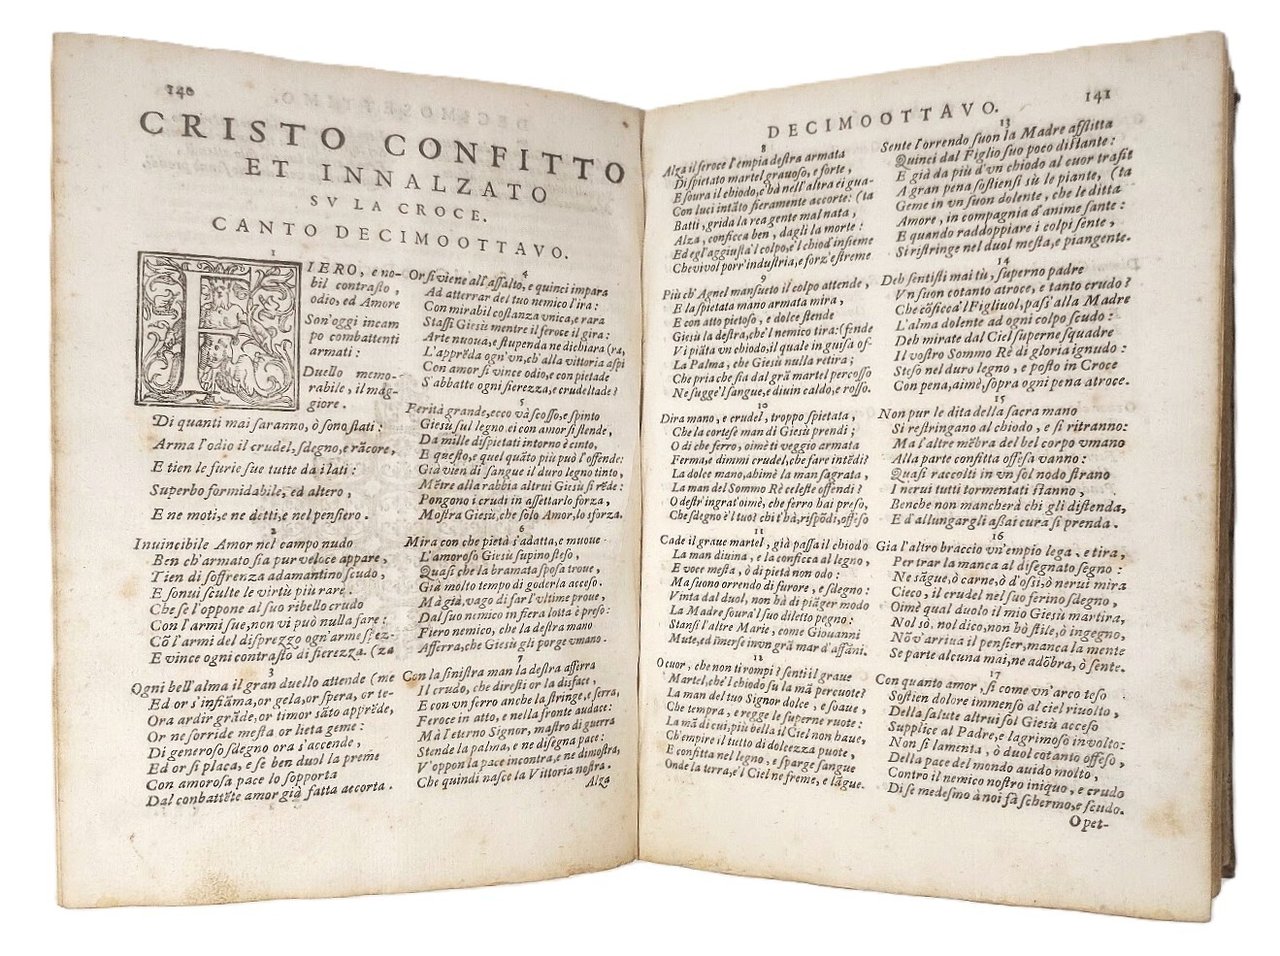 140
CRISTO CONFITTO
ET INNALZATO
SV LA CROCE.
CANTO DECIMOOTTAVO.
1
FIERO, e no-
bil contrasto,
odio, ed Amore
Son'oggi incam
po combattenti
armati:
Duello memo-
rabile, il mag-
giore.
Di quanti mai saranno, ò sono stati:
Arma l'odio il crudel, sdegno, e rācore,
E tien le furie sue tutte da i lati:
Superbo formidabile, ed altero,
E ne moti, e ne detti, e nel pensiero.
2
Inuincibile Amor nel campo nudo
Ben ch'armato sia pur veloce appare,
Tien di sofferenza adamantino scudo,
E sonui sculte le virtù più rare.
Che se l'oppone al suo ribello crudo
Con l'armi sue, non vi può nulla fare:
Cō l'armi del dispregzo ogn'arme sprez-
E vince ogni contrasto di fierezza. (za
3
Ogni bell'alma il gran duello attende (me
Ed or s'infiāma, or gela, or spera, or te-
Ora ardir grāde, or timor sāto apprēde,
Or ne sorride mesta or lieta geme:
Di generoso sdegno ora s'accende,
Ed or si placa, e se ben duol la preme
Con amorosa pace lo sopporta
Dal conbattēte amor già fatta accorta.
4
Or si viene all'assalto, e quinci impara
Ad atterrar del tuo nemico l'ira:
Con mirabil costanza vnica, e rara
Stassi Giesù mentre il feroce il gira:
Arte nuoua, e stupenda ne dichiara (ra,
L'apprēda ogn'vn, ch'alla vittoria aspi
Con amor si vince odio, e con pietade
S'abbatte ogni fierezza, e crudeltade?
5
Ferità grande, ecco và scosso, e spinto
Giesù sul legno ei con amor si stende,
Da mille dispietati intorno è cinto,
E questo, e quel quāto più può l'offende:
Già vien di sangue il duro legno tinto,
Mētre alla rabbia altrui Giesù si rēde:
Pongono i crudi in assettarlo forza,
Mostra Giesù, che solo Amor, lo sforza.
6
Mira con che pietà s'adatta, e muoue
L'amoroso Giesù supino steso,
Quasi che la bramata sposa troue,
Già molto tempo di goderla acceso.
Mà già, vago di far l'vltime proue,
Dal suo nemico in fiera lotta è preso:
Fiero nemico, che la destra mano
Afferra, che Giesù gli porge vmano.
7
Con la sinistra man la destra afferra
Il crudo, che diresti or la disface,
E con vn ferro anche la stringe, e serra,
Feroce in atto, e nella fronte audace:
Mà l'eterno Signor, mastro di guerra
Stende la palma, e ne disegna pace:
V'oppon la pace incontra, e ne dimostra,
Che quindi nasce la Vittoria nostra.
Alza
DECIMOOTTAVO.
141
8
Alza il feroce l'empia destra armata
Di spietato martel grauoso, e forte,
E soura il chiodo, c'hà nell'altra ei gua-
Con luci intāto fieramente accorte: (ta
Batti, grida la rea gente mal nata,
Alza, conficca ben, dagli la morte:
Ed egl'aggiusta'l colpo, e'l chiod'insieme
Che vi vol porr'industria, e forz'estreme
9
Più ch'Agnel mansueto il colpo attende,
E la spietata mano armata mira,
E con atto pietoso, e dolce stende
Giesù la destra, che'l nemico tira: (fende
Vi piāta vn chiodo, il quale in guisa of-
La Palma, che Giesù nulla retira;
Che pria che sia dal grā martel percosso
Ne sugge'l sangue, e diuin caldo, e rosso.
10
Dira mano, e crudel, troppo spietata,
Che la cortese man di Giesù prendi;
O di che ferro, oimè ti veggio armata
Ferma, e dimmi crudel, che fare intēdi?
La dolce mano, ahimè la man sagrata,
La man del Sommo Rè celeste offendi?
O destr'ingrat'oimè, che ferro hai preso,
Che sdegno è'l tuo? chi t'hà, rispōdi, offeso
11
Cade il graue martel, già passa il chiodo
La man diuina, e la conficca al legno,
E voce mesta, ò di pietà non odo:
Ma suono orrendo di furore, e sdegno:
Vinta dal duol, non hà di piāger modo
La Madre soura'l suo diletto pegno:
Stansi l'altre Marie, come Giouanni
Mute, ed imerse in vn grā mar d'affāni.
12
O cuor, che non ti rompi? senti il graue
Martel, che'l chiodo su la mā percuote?
La man del tuo Signor dolce, e soaue,
Che tempra, e regge le superne ruote:
La mā di cui, più bella il Ciel non haue,
Ch'empire il tutto di dolcezza puote,
E confitta nel legno, e sparge sangue
Onde la terra, e'l Ciel ne freme, e lāgue.
13
Sente l'orrendo suon la Madre afflitta
Quinci dal Figlio suo poco distante:
E già da più d'vn chiodo al cuor trafit
A gran pena sostiensi sù le piante, (ta
Geme in vn suon dolente, che le ditta
Amore, in compagnia d'anime sante:
E quando raddoppiare i colpi sente,
Si ristringe nel duol mesta, e piangente.
14
Deh sentisti mai tù, superno padre
Vn suon cotanto atroce, e tanto crudo?
Che cōficca'l Figliuol, pass'alla Madre
L'alma dolente ad ogni colpo scudo:
Deh mirate dal Ciel superne squadre
Il vostro Sommo Rè di gloria ignudo:
Steso nel duro legno, e posto in Croce
Con pena, aimè, sopra ogni pena atroce.
15
Non pur le dita della sacra mano
Si restringano al chiodo, e si ritranno:
Ma l'altre mēbra del bel corpo vmano
Alla parte confitta offesa vanno:
Quasi raccolti in vn sol nodo strano
I nerui tutti tormentati stanno,
Benche non mancherà chi gli distenda,
E d'allungargli assai cura si prenda.
16
Gia l'altro braccio vn'empio lega, e tira,
Per trar la manca al disegnato segno:
Ne sāgue, ò carne, ò d'ossi, ò nerui mira
Cieco, il crudel nel suo ferino sdegno,
Oimè qual duolo il mio Giesù martira,
Nol sò, nol dico, non hò stile, ò ingegno,
Nō v'arriua il pensier, manca la mente
Se parte alcuna mai, ne adōbra, ò sente.
17
Con quanto amor, si come vn'arco teso
Sostien dolore immenso al ciel riuolto,
Della salute altrui sol Giesù acceso
Supplice al Padre, e lagrimoso in volto:
Non si lamenta, ò duol cotanto offeso,
Della pace del mondo auido molto,
Contro il nemico nostro iniquo, e crudo
Di se medesmo à noi fà schermo, e scudo.
O pet-